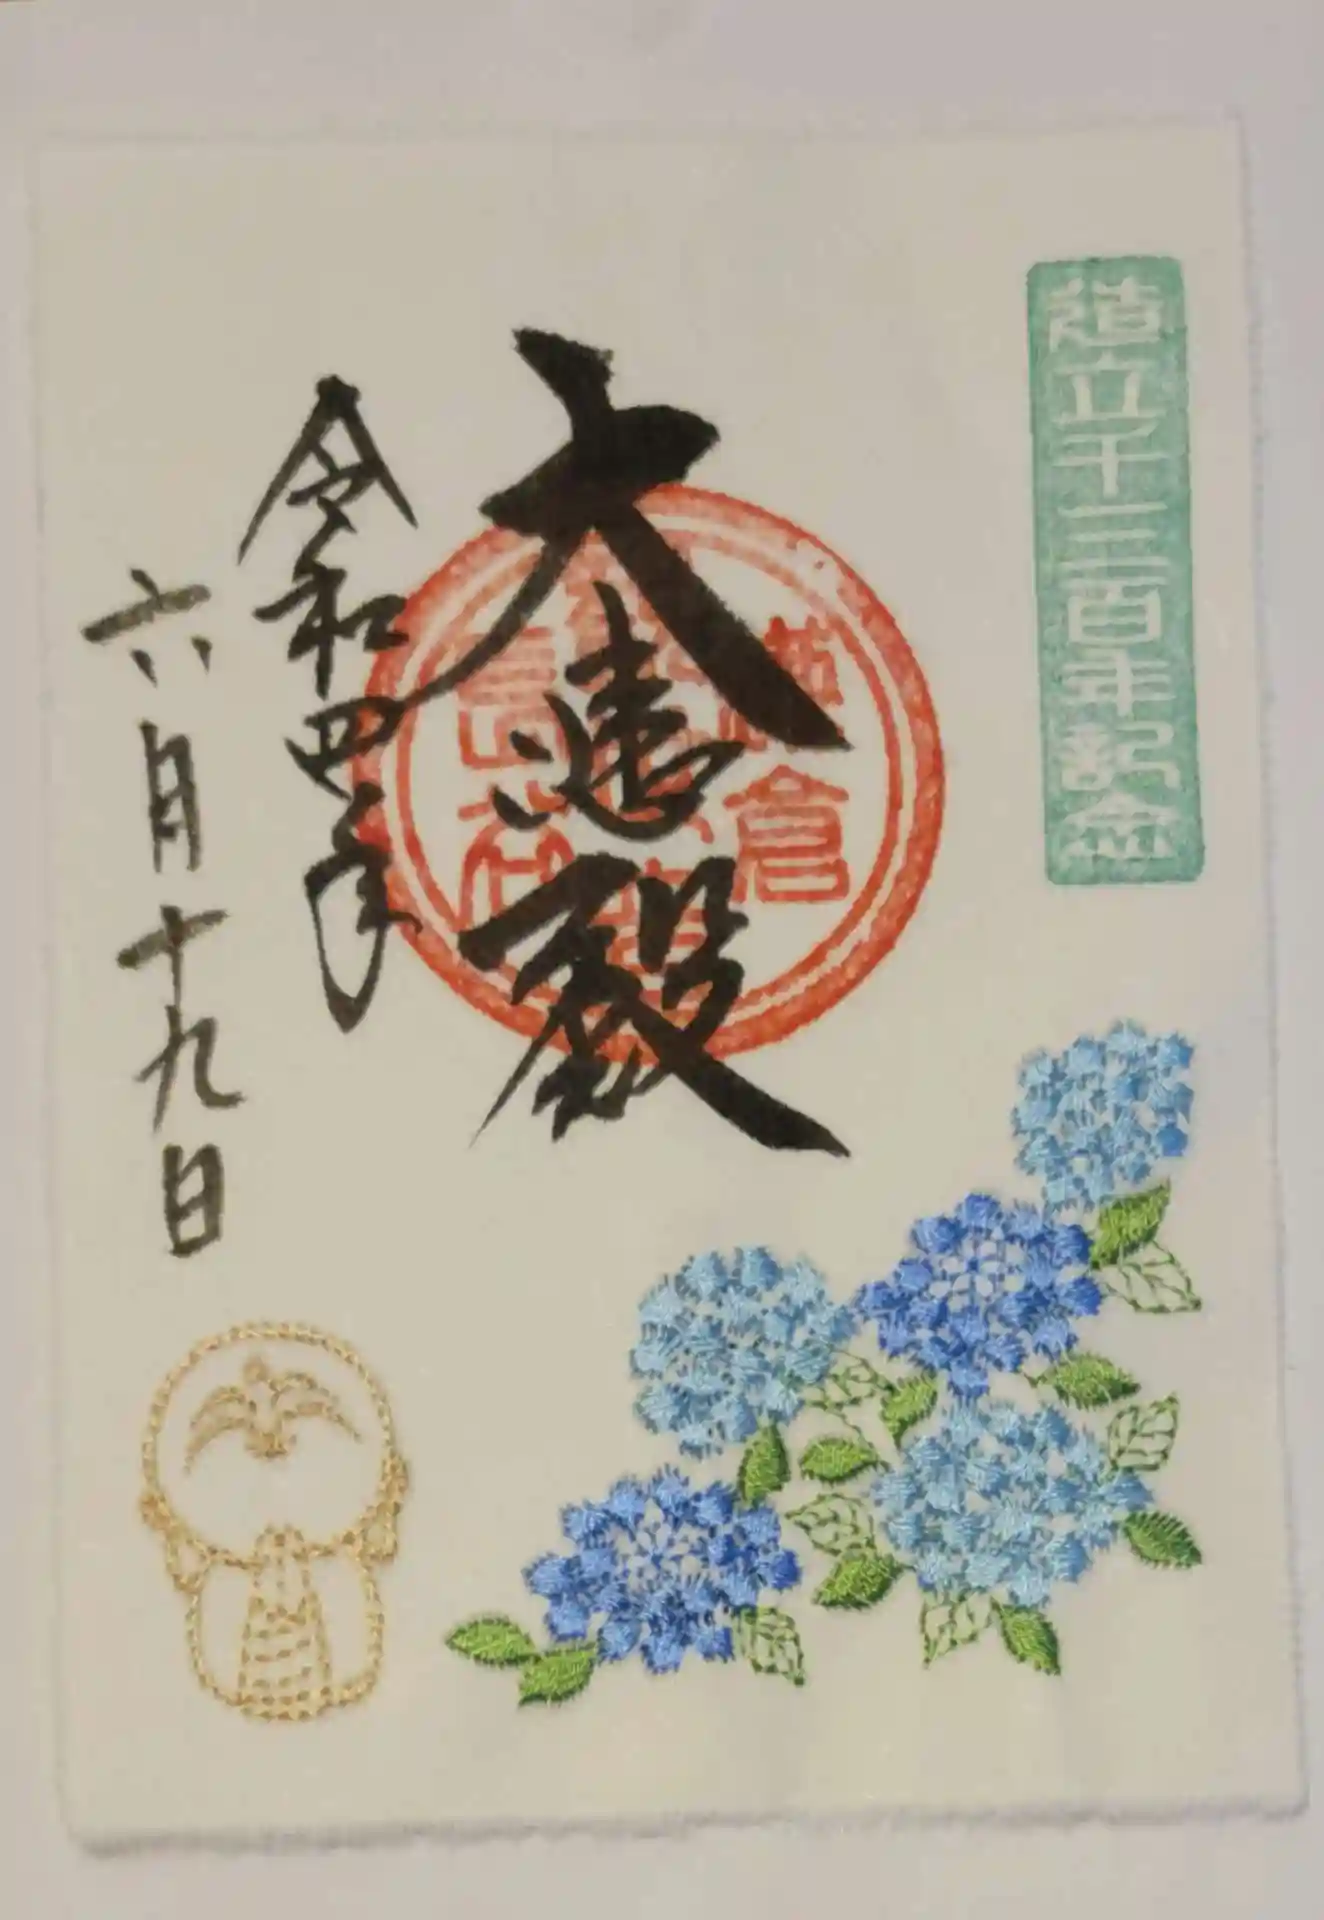 造立千三百年記念
大悲殿
鎌倉
長谷
令和四年
六月十九日